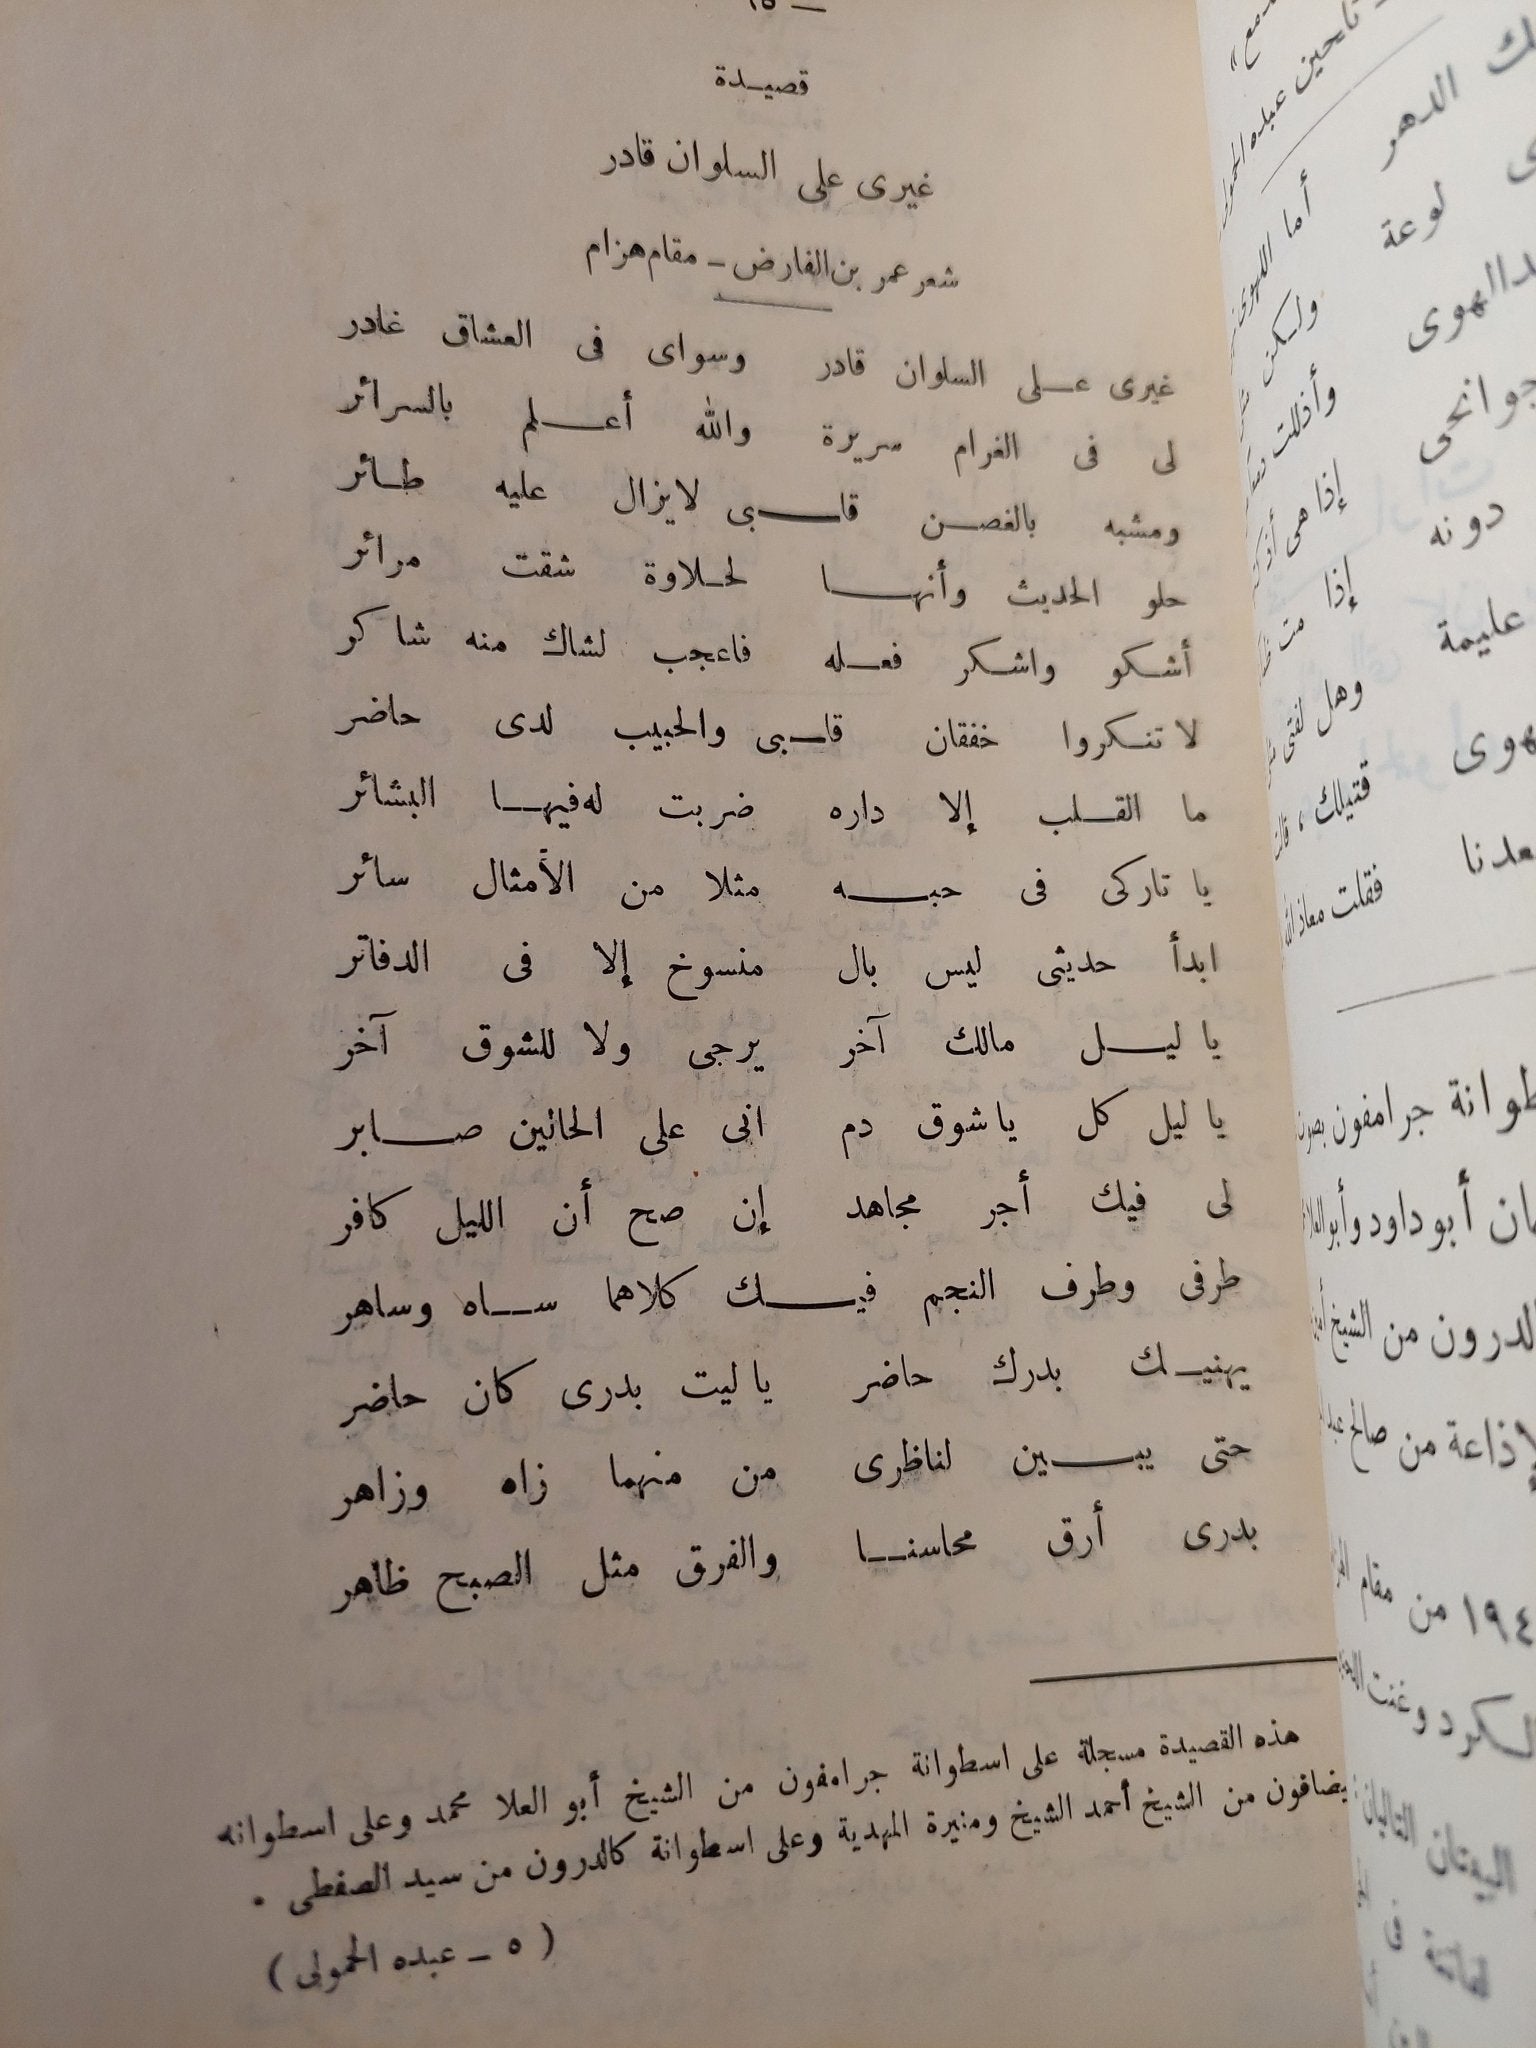 قصيدة
غيرى على السلوان قادر
شعر عمر بن الفارض - مقام هزام
غيرى على السلوان قادر وسواى فى العشاق غادر
لى فى الغرام سريرة والله أعلم بالسرائر
ومشبه بالغصن قلبى لا يزال عليه طائر
حلو الحديث وأنها لحلاوة شقت مرائر
أشكو واشكر فعله فاعجب لشاك منه شاكو
لا تنكروا خفقان قلبى والحبيب لدى حاضر
ما القلب إلا داره ضربت له فيها البشائر
يا تاركى فى حبه مثلا من الأمثال سائر
ابدأ حديثى ليس بال منسوخ إلا فى الدفاتر
يا ليل مالك آخر يرجى ولا للشوق آخر
يا ليل كل يا شوق دم انى على الحائين صابر
لى فيك أجر مجاهد إن صح أن الليل كافر
طرفى وطرف النجم فيك كلاهما ساه وساهر
يهنيك بدرك حاضر يا ليت بدرى كان حاضر
حتى يبين لناظرى من منهما زاه وزاهر
بدرى أرق محاسنا والفرق مثل الصبح ظاهر
هذه القصيدة مسجلة على اسطوانة جرامفون من الشيخ أبو العلا محمد وعلى اسطوانه
بيضافون من الشيخ أحمد الشيخ ومنيرة المهدية وعلى اسطوانة كالدرون من سيد الصفطى .
( ٥ - عبده الحمولى )
تلحين عبده
ك الدهر
أما الهوى
لوعة
ولكن
وأذللت
جوانحى
إذا هى
دونه
إذا مت
عليمة
وهل لفتى
قتيلك ، قالت
فقلت معاذ الله
جرامفون بصوت
أبو داود وأبو العلا
من الشيخ
من صالح
من مقام
وغنت